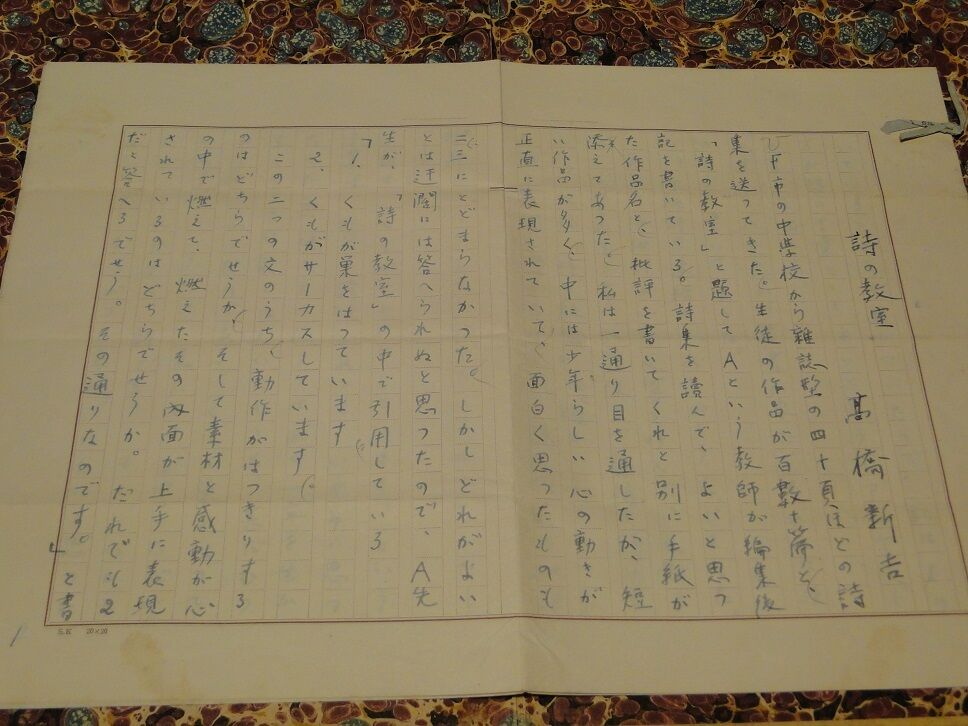 詩の教室
高橋新吉
F市の中学校から雑誌型の四十頁ほどの詩
集を送ってきた。生徒の作品が百数十篇と、
「詩の教室」と題してAという教師が編集後
記を書いている。詩集を読んで、よいと思つ
た作品名と、批評を書いてくれと別に手紙が
添えてあつた。私は一通り目を通したが、短
い作品が多く、中には少年らしい心の動きが
正直に表現されていて、面白く思つたものも
二三にとどまらなかつた。しかしどれがよい
とは迂闊には答へられぬと思つたので、A先
生が、「詩の教室」の中で引用している
「1、くもが巣をはつています
2、くもがサーカスしています
この二つの文のうち、動作がはつきりする
のはどちらでせうか、そして素材と感動が心
の中で燃えて、燃えたその内面が上手に表現
されているのはどちらでせうか。だれでも2
だと答へるでせう。その通りなのです。」と書
S.K 20×20
1